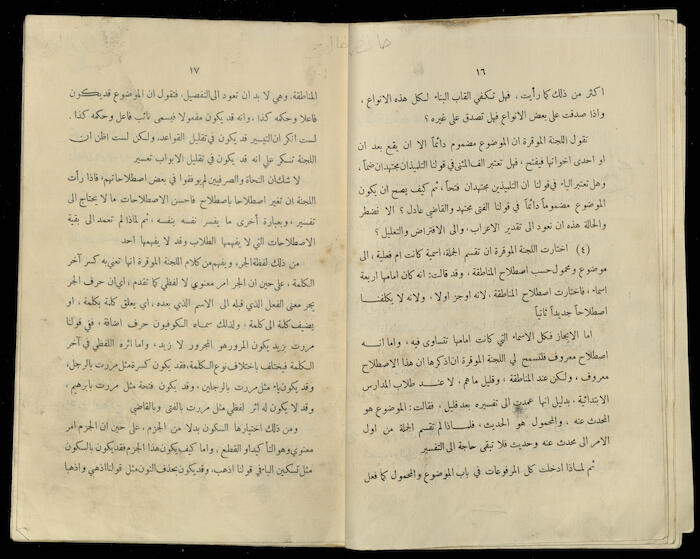 ١٦
اكثر من ذلك كما رأيت ، فهل تكفي القاب البناء لكل هذه الانواع ،
واذا صدقت على بعض الانواع فهل تصدق على غيره ؟
تقول اللجنة الموقرة ان الموضوع مضموم دائماً الا ان يقع بعد ان
او احدى اخواتها فيفتح ، فهل تعتبر الف المثنى في قولنا التلميذان مجتهدان ضماً ،
وهل تعتبر الياء في قولنا ان التلميذين مجتهدان فتحاً ، ثم كيف يصح ان يكون
الموضوع مضموماً دائماً في قولنا الفتى مجتهد والقاضي عادل ؟ الا نضطر
والحالة هذه ان نعود الى تقدير الاعراب ، والى الافتراض والتعليل ؟
(٤) اختارت اللجنة الموقرة ان تقسم الجملة ، اسمية كانت ام فعلية ، الى
موضوع ومحمول حسب اصطلاح المناطقة ، وقد قالت : انه كان امامها اربعة
اسماء ، فاختارت اصطلاح المناطقة ، لانه اوجز اولا ، ولانه لا يكلفنا
اصطلاحاً جديداً ثانياً
اما الايجاز فكل الاسماء التي كانت امامها تتساوى فيه ، واما انه
اصطلاح معروف فلتسمح لي اللجنة الموقرة ان اذكرها ان هذا الاصطلاح
معروف ، ولكن عند المناطقة ، وقليل ماهم ، لا عند طلاب المدارس
الابتدائية ، بدليل انها عمدت الى تفسيره بعد قليل ، فقالت : الموضوع هو
المحدث عنه ، والمحمول هو الحديث ، فلماذا لم تقسم الجملة من اول
الامر الى محدث عنه وحديث فلا تبقى حاجة الى التفسير
ثم لماذا ادخلت كل المرفوعات في باب الموضوع والمحمول كما فعل
١٧
المناطقة ، وهي لا بد ان تعود الى التفصيل ، فتقول ان الموضوع قد يكون
فاعلا وحكمه كذا ، وانه قد يكون مفعولا فيسمى نائب فاعل وحكمه كذا .
لست انكر ان التيسير قد يكون في تقليل القواعد ، ولكن لست اظن ان
اللجنة تنكر علي انه قد يكون في تقليل الابواب تعسير
لا شك ان النحاة والصرفيين لم يوفقوا في بعض اصطلاحاتهم ، فاذا رأت
اللجنة ان تغير اصطلاحا باصطلاح فاحسن الاصطلاحات ما لا يحتاج الى
تفسير ، وبعبارة أخرى ما يفسر نفسه بنفسه ، ثم لماذا لم تعمد الى بقية
الاصطلاحات التي لا يفهمها الطلاب وقد لا يفهمها احد
من ذلك لفظة الجر ، ويفهم من كلام اللجنة الموقرة انها تعني به كسر آخر
الكلمة ، على حين ان الجر امر معنوي لا لفظي كما تقدم ، اي ان حرف الجر
يجر معنى الفعل الذي قبله الى الاسم الذي بعده ، اي يعلق كلمة بكلمة ، او
يضيف كلمة الى كلمة ، ولذلك سماه الكوفيون حرف اضافة ، ففي قولنا
مررت بزيد يكون المرور هو المجرور لا زيد ، واما اثره اللفظي في آخر
الكلمة فيختلف باختلاف نوع الكلمة ، فقد يكون كسرة مثل مررت بالرجل ،
وقد يكون ياء مثل مررت بالرجلين ، وقد يكون فتحة مثل مررت بابرهيم ،
وقد لا يكون له اثر لفظي مثل مررت بالفتى وبالقاضي
ومن ذلك اختيارها السكون بدلا من الجزم ، على حين ان الجزم امر
معنوي وهو التأكيد او القطع ، واما كيف يكون هذا الجزم فقد يكون بالسكون
مثل تسكين الباء في قولنا اذهب ، وقد يكون بحذف النون مثل قولنا اذهبي واذهبا